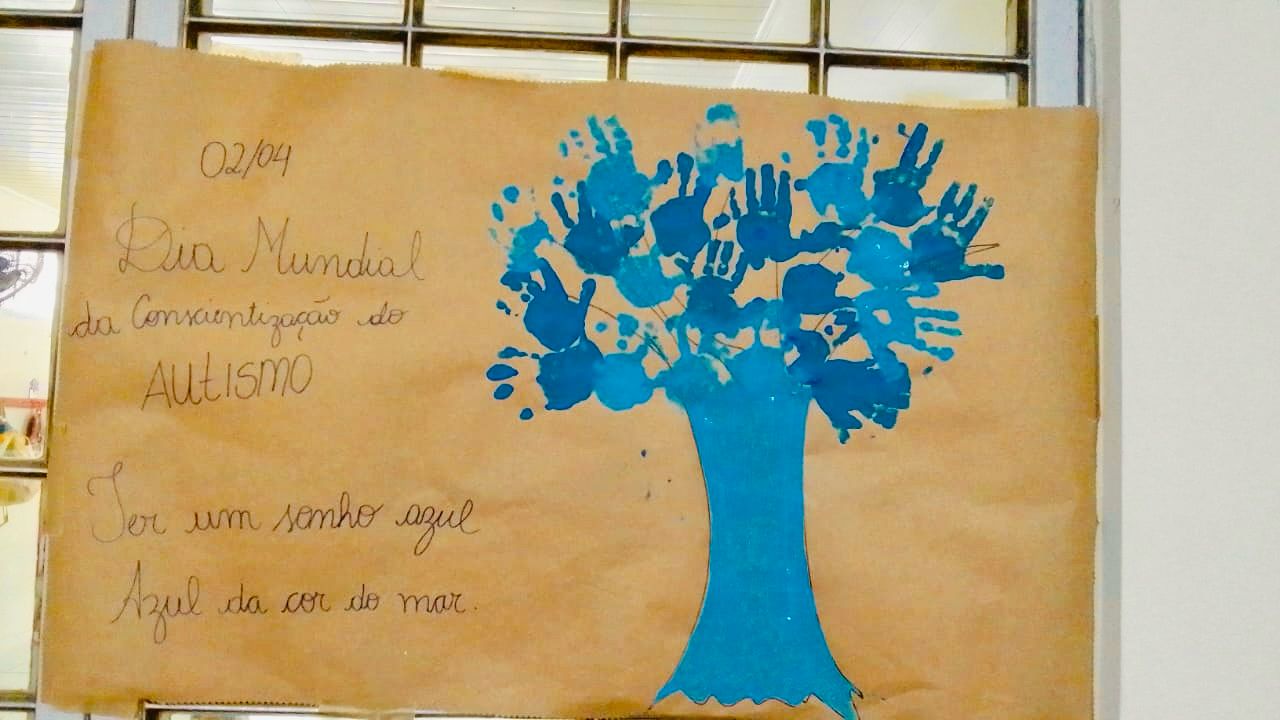 02/04
Dia Mundial
da Conscientização do
AUtISMO
Ter um sonho azul
Azul da cor do mar.